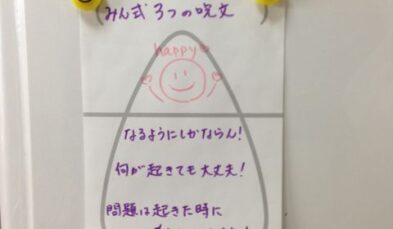 みん式 3つの呪文
happy
なるようにしかならん!
何が起きても大丈夫!
問題は起きた時に